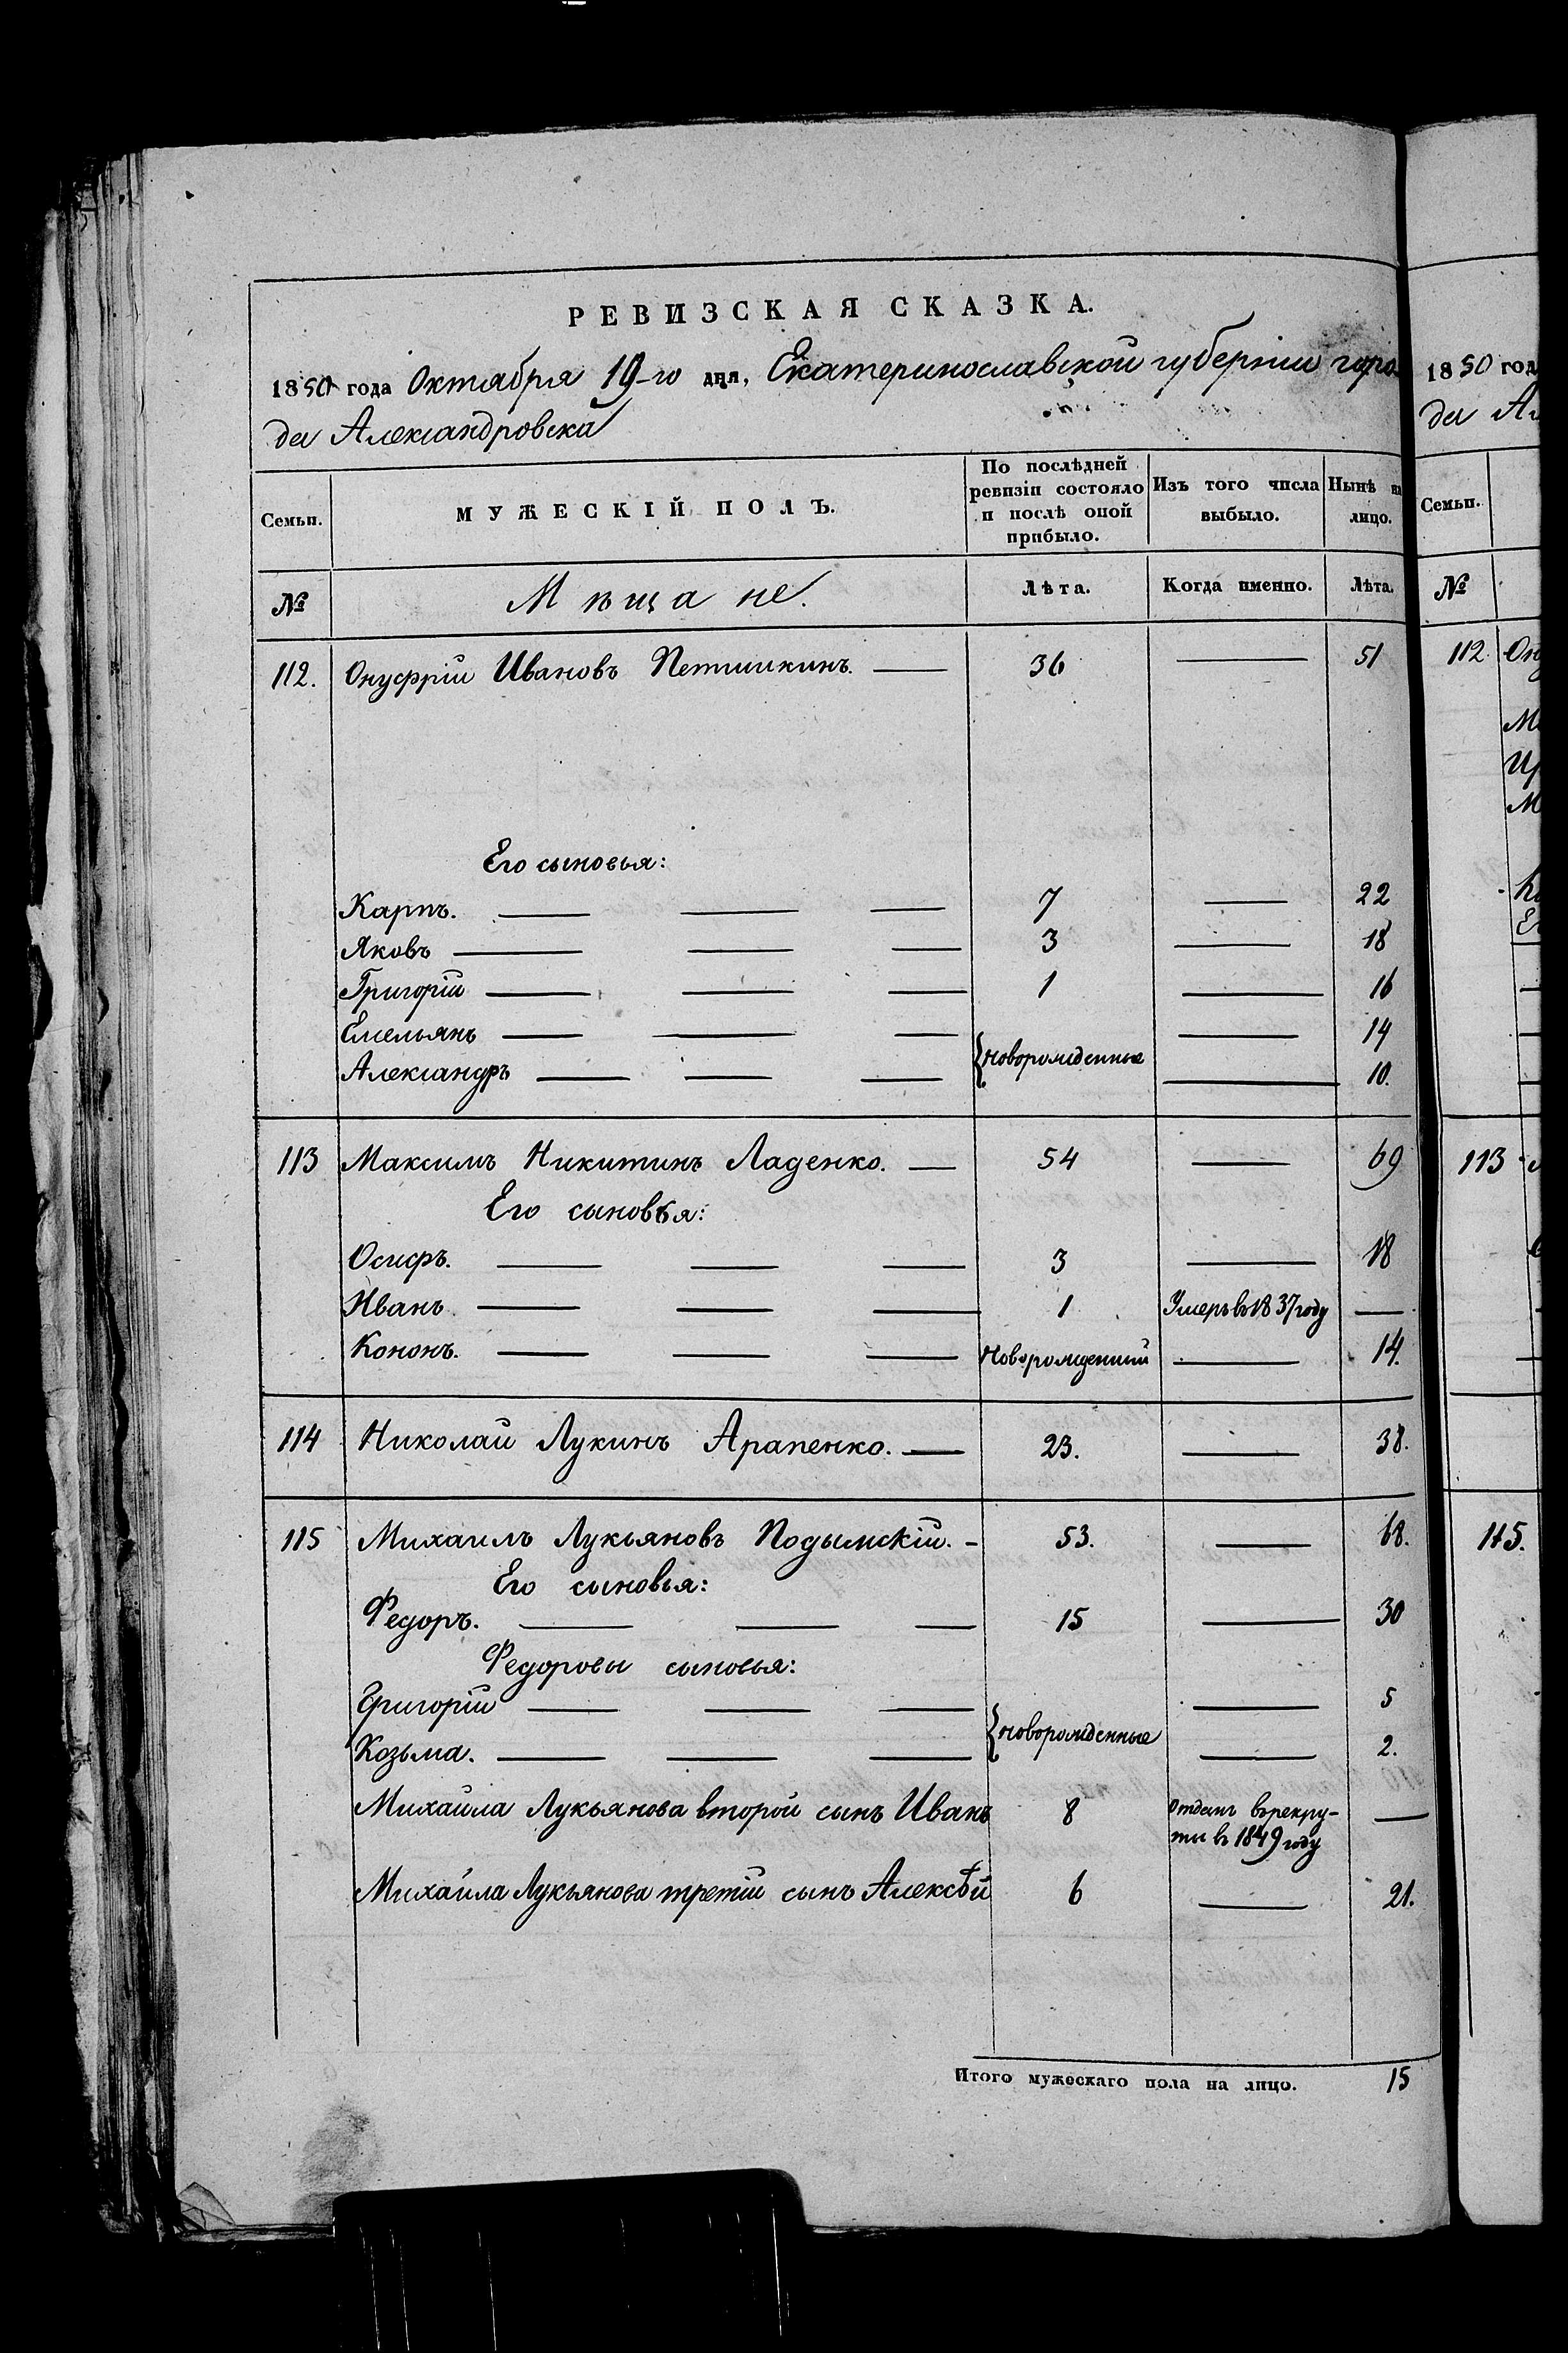 РЕВИЗСКАЯ СКАЗКА.
1850 года Октября 19-го дня, Екатеринославской губерніи горо-
да Александровска
Семьи. МУЖЕСКІЙ ПОЛЪ. По послѣдней ревизіи состояло и послѣ оной прибыло. Изъ того числа выбыло. Нынѣ на лицо.
№ Мѣщане. Лѣта. Когда именно. Лѣта.
112. Онуфрій Ивановъ Петишкинъ. — 36 — 51
Его сыновья:
Карпъ. — 7 — 22
Яковъ — 3 — 18
Григорій — 1 — 16
Емельянъ — — 14
{новорожденные
Александръ — — 10.
113 Максимъ Никитинъ Ладенко. — 54 — 69
Его сыновья:
Осифъ. — 3 — 18
Иванъ — 1 Умеръ въ 1837 году —
Кононъ. — Новорожденный — 14.
114 Николай Лукинъ Арапенко. — 23. — 38.
115 Михаилъ Лукьяновъ Подымскій. - 53. — 68.
Его сыновья:
Федоръ. — 15 — 30
Федоровы сыновья:
Григорій — — 5
{новорожденные
Козьма. — — 2.
Михаила Лукьянова второй сынъ Иванъ 8 Отданъ въ рекру-
ты въ 1849 году —
Михаила Лукьянова третій сынъ Алексѣй 6 — 21.
Итого мужескаго пола на лицо. 15
1850 год
да Ал
Семьи.
№
112. Ону
Ма
Ир
М
113
115.